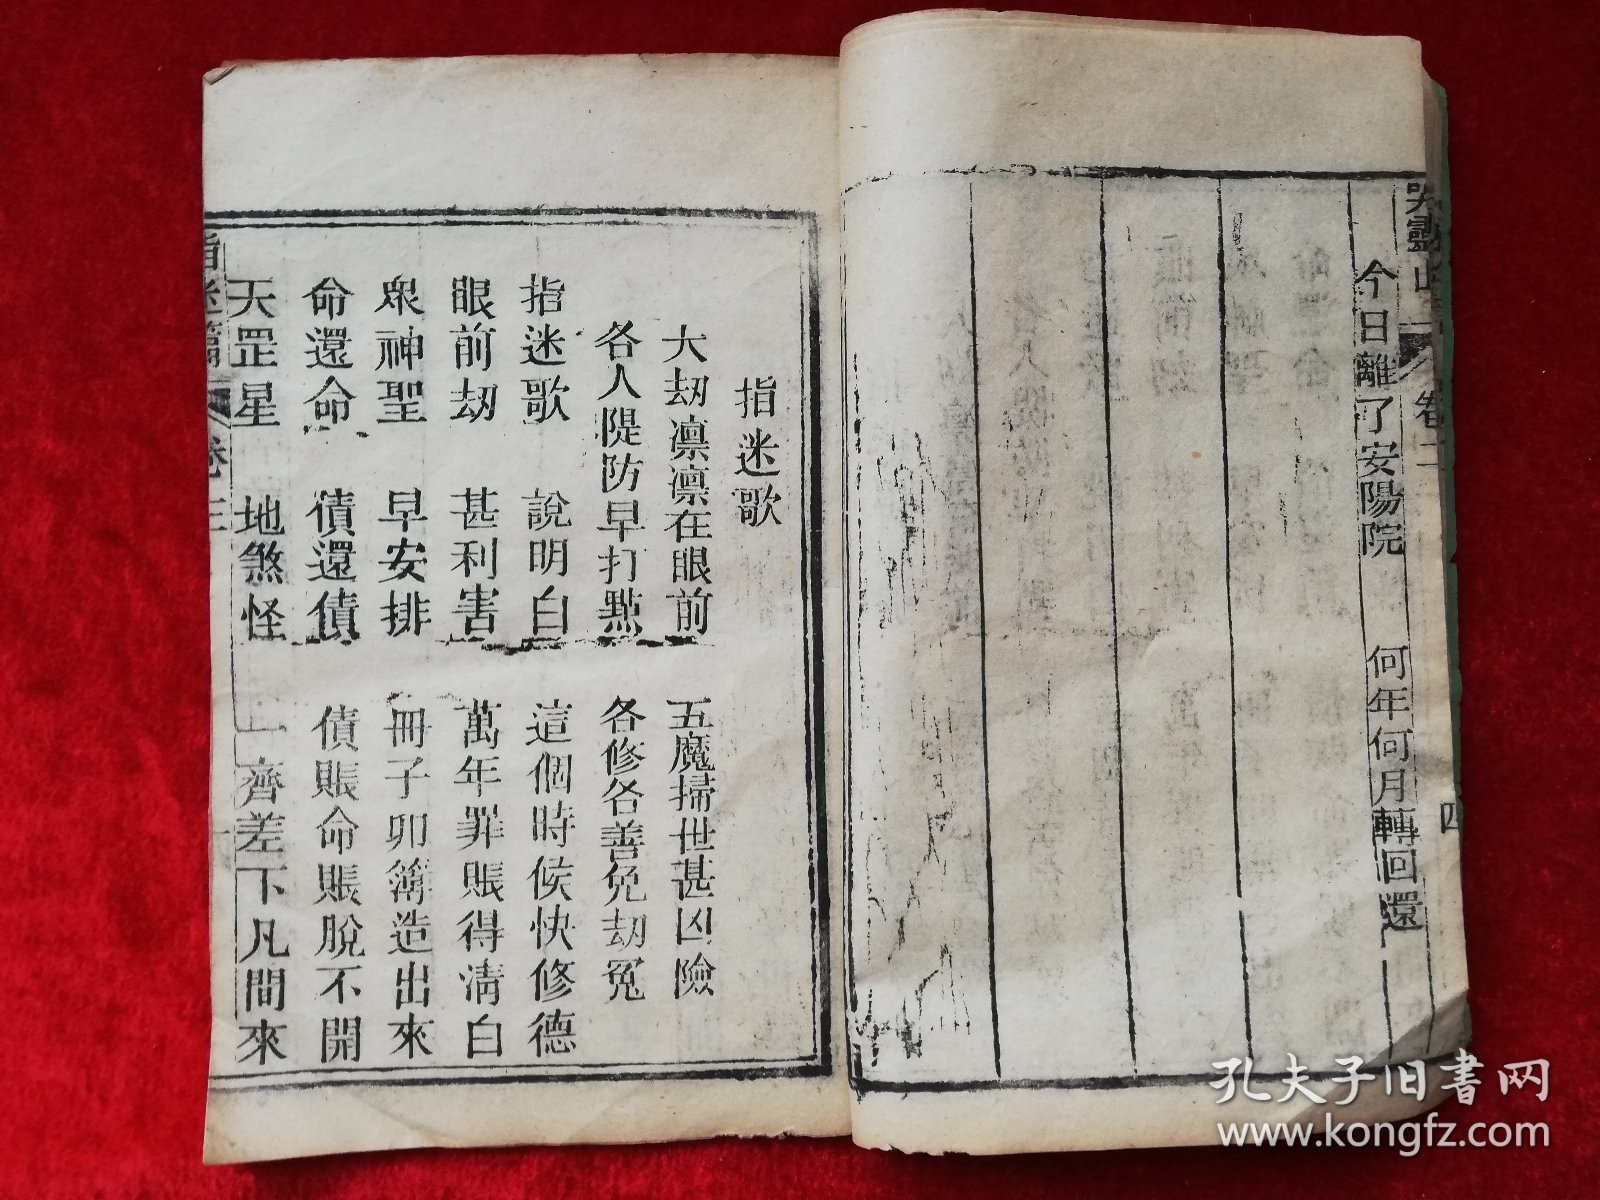 今日離了安陽院 何年何月轉回還
卷二
四
指迷歌
大刼凛凛在眼前 五魔掃世甚凶險
各人隄防早打㸃 各修各善免刼冤
指迷歌 說明白 這個時候快修德
眼前刼 甚利害 萬年罪賬得清白
衆神聖 早安排 冊子卯簿造出來
命還命 債還債 債賬命賬脫不開
天罡星 地煞怪 一齊差下凡間來
指迷篇 卷三
孔夫子旧書网
www.kongfz.com